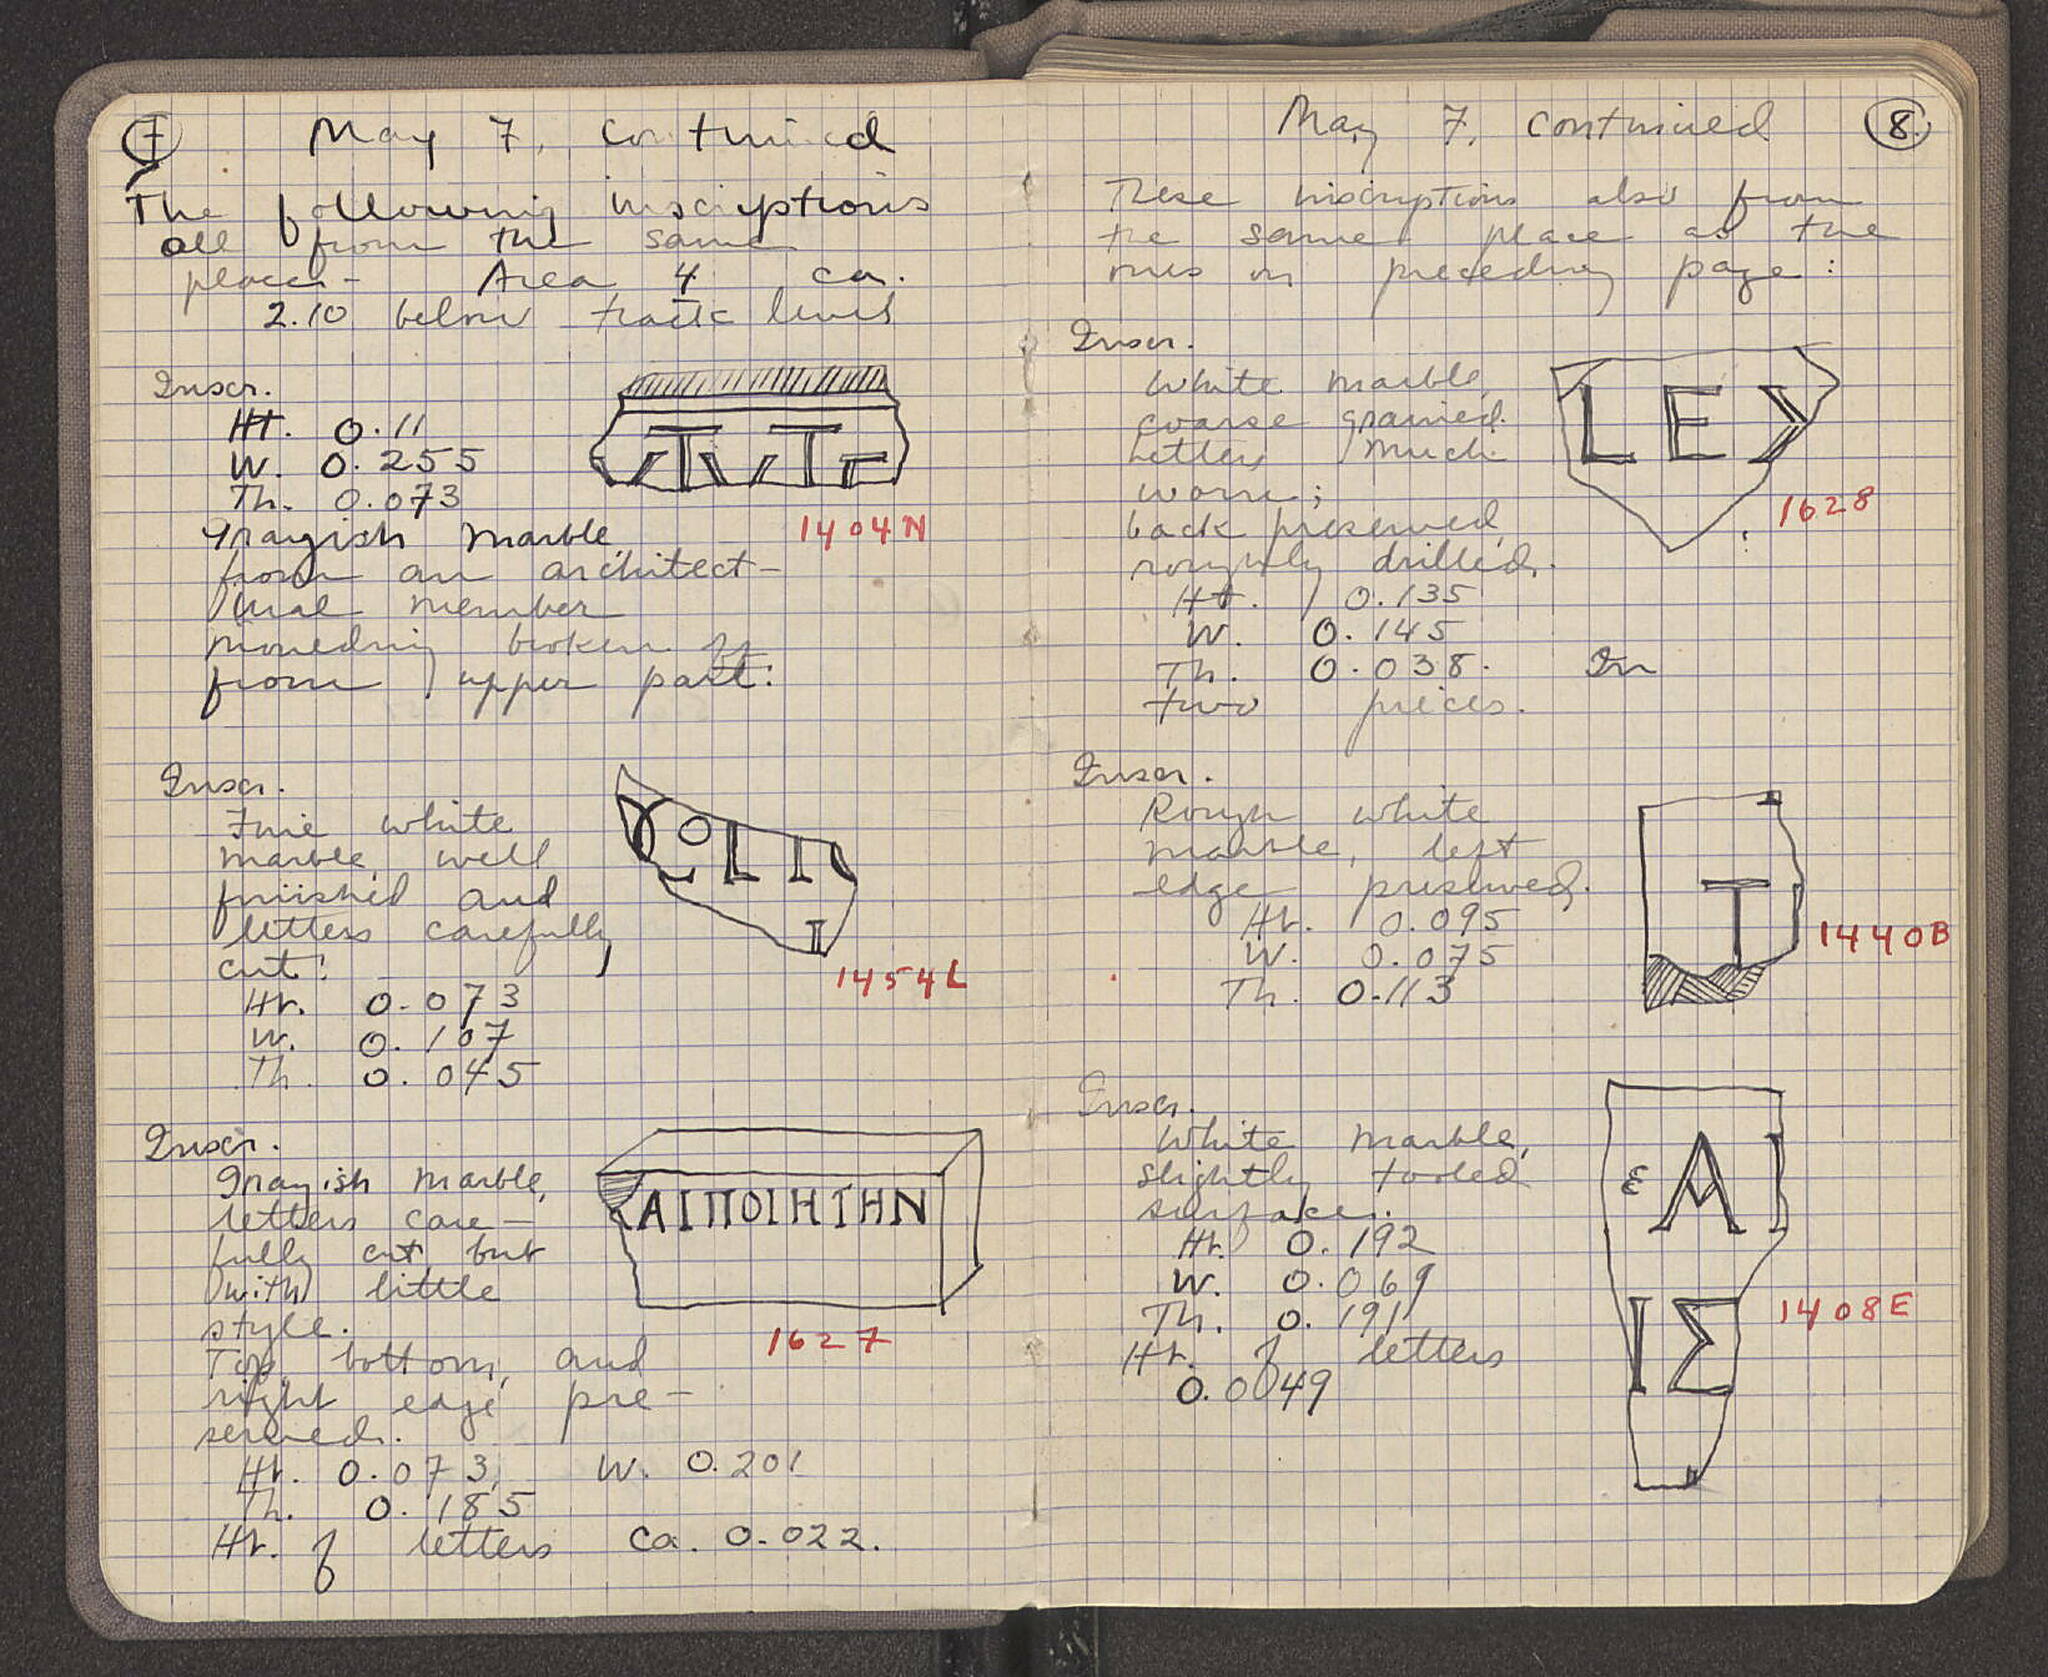 7
May 7, continued
The following inscriptions
all from the same
place - Area 4 ca.
2.10 below track level
Inscr.
Ht. 0.11
W. 0.255
Th. 0.073
Grayish marble
from an architect-
ural member
moulding broken
from upper part:
1404N
Inscr.
Fine white
marble, well
finished and
letters carefully
cut:
Ht. 0.073
W. 0.107
Th. 0.045
OLI
I
1454L
Inscr.
Grayish marble,
letters care-
fully cut, but
with little
style.
Top, bottom, and
right edge pre-
served.
Ht. 0.073, W. 0.201
Th. 0.185
Ht. of letters ca. 0.022.
ΑΙΠΟΙΗΤΗΝ
1627
May 7, continued
8
These inscriptions also from
the same place as the
ones on preceding page:
Inscr.
White marble,
coarse grained.
Letters much
worn;
back preserved,
roughly drilled.
Ht. 0.135
W. 0.145
Th. 0.038. In
two pieces.
LEX
1628
Inscr.
Rough white
marble, left
edge preserved.
Ht. 0.095
W. 0.075
Th. 0.113
T
1440B
Inscr.
White marble,
slightly tooled
surface.
Ht. 0.192
W. 0.069
Th. 0.191
Ht. of letters
0.0049
ε ΑΙ
ΙΣ
1408E